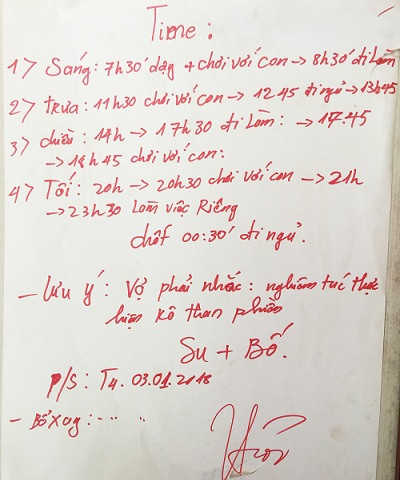 Time:
1> Sáng: 7h30' dậy + chơi với con → 8h30' đi Làm
2> trưa: 11h30 chơi với con → 12 45 đi ngủ → 13h45
3> chiều: 14h → 17h30 đi Làm: → 17.45
→ 18h45 chơi với con:
4> Tối: 20h → 20h30 chơi với con → 21h
→ 23h30 Làm việc Riêng
chốt 00:30' đi ngủ.
- Lưu ý: Vợ phải nhắc: nghiêm túc thực
hiện kô than phiền
Su + Bố.
P/S: T4. 03.01.2018
- Bổ xag: -- --